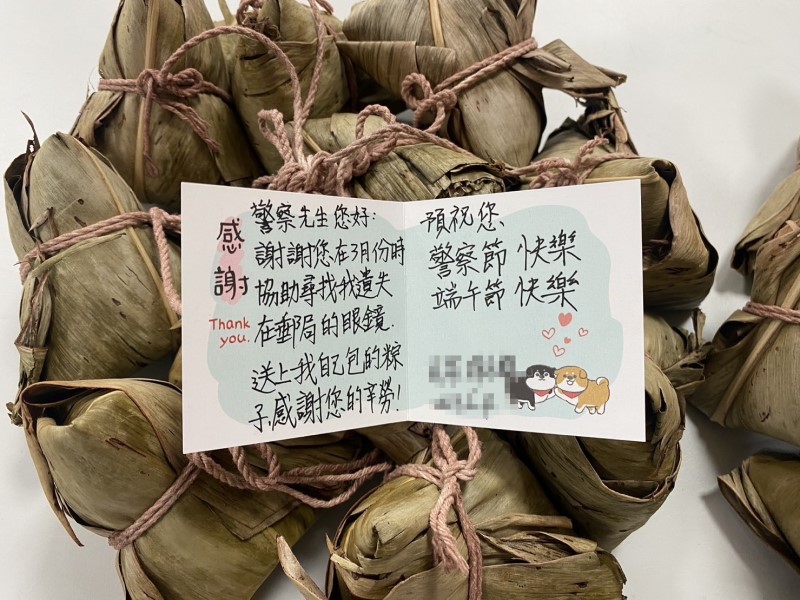 感謝
Thank
you.
警察先生您好:
謝謝您在3月份時
協助尋找我遺失
在郵局的眼鏡.
送上我自己包的粽
子,感謝您的辛勞!
預祝您、
警察節 快樂
端午節 快樂